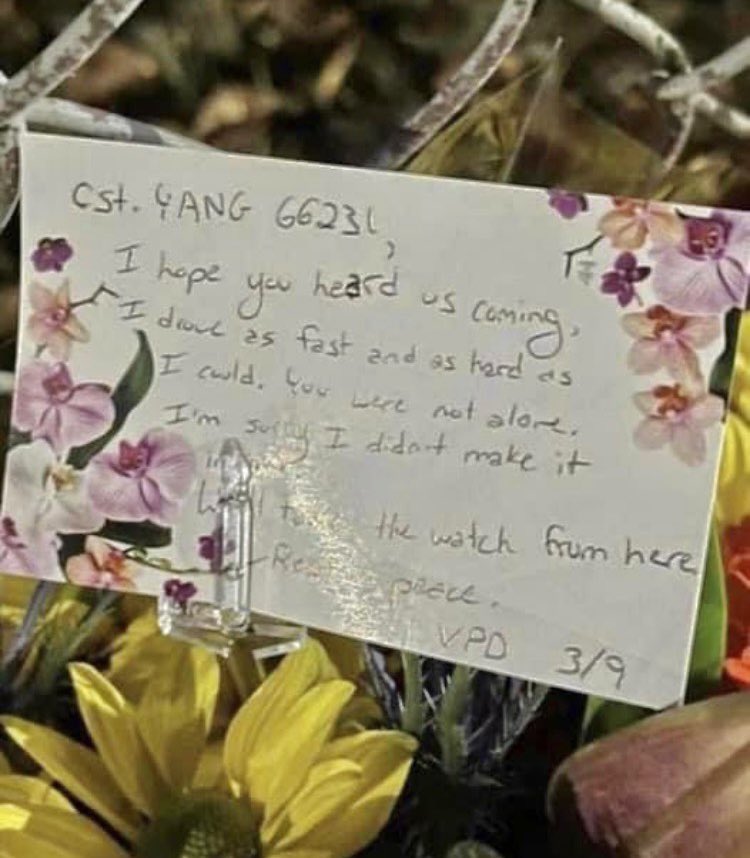 Cst. YANG 66231,
I hope you heard us coming,
I drove as fast and as hard as
I could. You were not alone.
I'm sorry I didn't make it
in
We'll the watch from here
Rest peace.
VPD 3/9